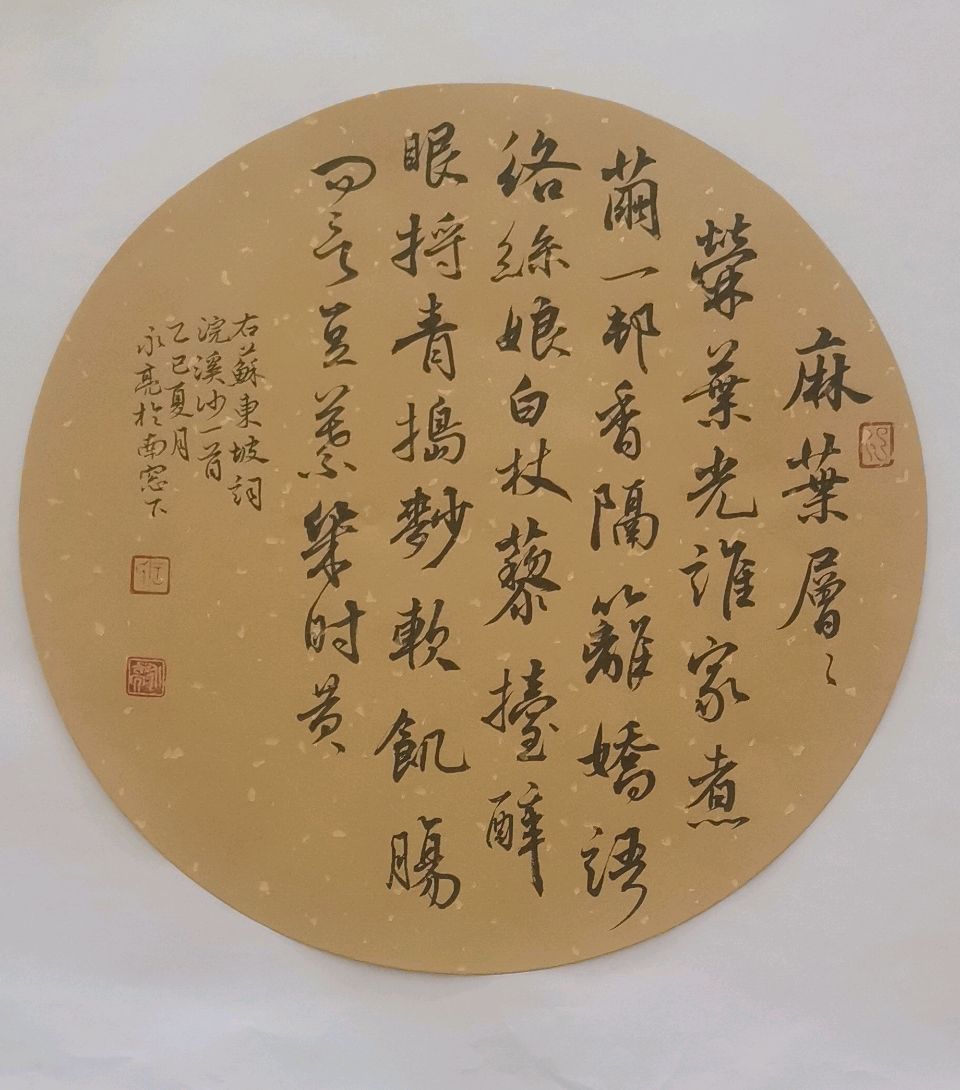 麻葉層〻
檾葉光誰家煮
繭一邨香隔籬嬌語
絡絲娘白杖藜擡醉
眼捋青搗麨軟飢腸
问言豆葉幾时黄
右蘇東坡詞
浣溪沙一首
乙巳夏月
永亮於南窓下